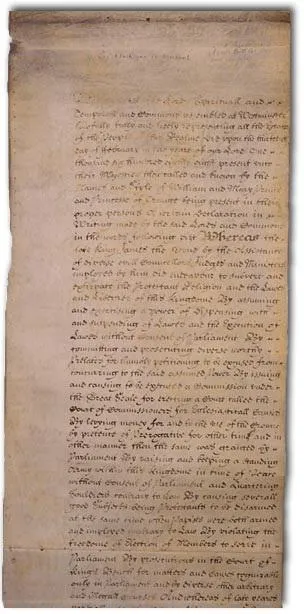 Lords Spirituall and
Temporall and Commons assembled at Westminster
Lawfully fully and freely representing all the Estates
of the People of this Realme did upon the
day of February in the yeare of our Lord One
thousand six hundred eighty eight present unto
their Majesties then called and known by the
Names and Style of William and Mary Prince
and Princesse of Orange being present in their
proper persons a certain Declaration in
Writing made by the said Lords and Commons
in the words following viz Whereas the
late King James the Second by the Assistance
of diverse evill Councellors Judges and Ministers
imployed by him did endeavour to subvert and
extirpate the Protestant Religion and the Lawes
and Liberties of this Kingdome By assuming
and exercising a power of Dispensing with
and suspending of Lawes and the Execution of
Lawes without Consent of Parliament By
committing and prosecuting diverse worthy
Prelates for humbly petitioning to be excused from
concurring to the said assumed Power By issueing
and causing to be executed a Commission under
the Great Seale for erecting a Court called the
Court of Commissioners for Ecclesiasticall Causes
By levying money for and to the use of the Crowne
by pretence of Prerogative for other time and in
other manner then the same was granted by
Parliament By raising and keeping a standing
Army within this Kingdome in time of Peace
without Consent of Parliament and Quartering
Souldiers contrary to Law By causing severall
good Subjects being Protestants to be disarmed
at the same time when Papists were both armed
and imployed contrary to Law By violating the
freedome of Election of Members to serve in
Parliament By prosecutions in the Court of
Kings Bench for matters and causes cognizable
only in Parliament and by diverse other arbitrary
and illegall courses And whereas of late yeares